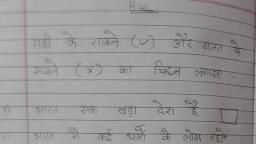 H.W
सही के सामने (✓) और गलत के
सामने (×) का चिह्न लगाइए
1) भारत एक बड़ा देश है
भारत में कई धर्मों के लोग रहते